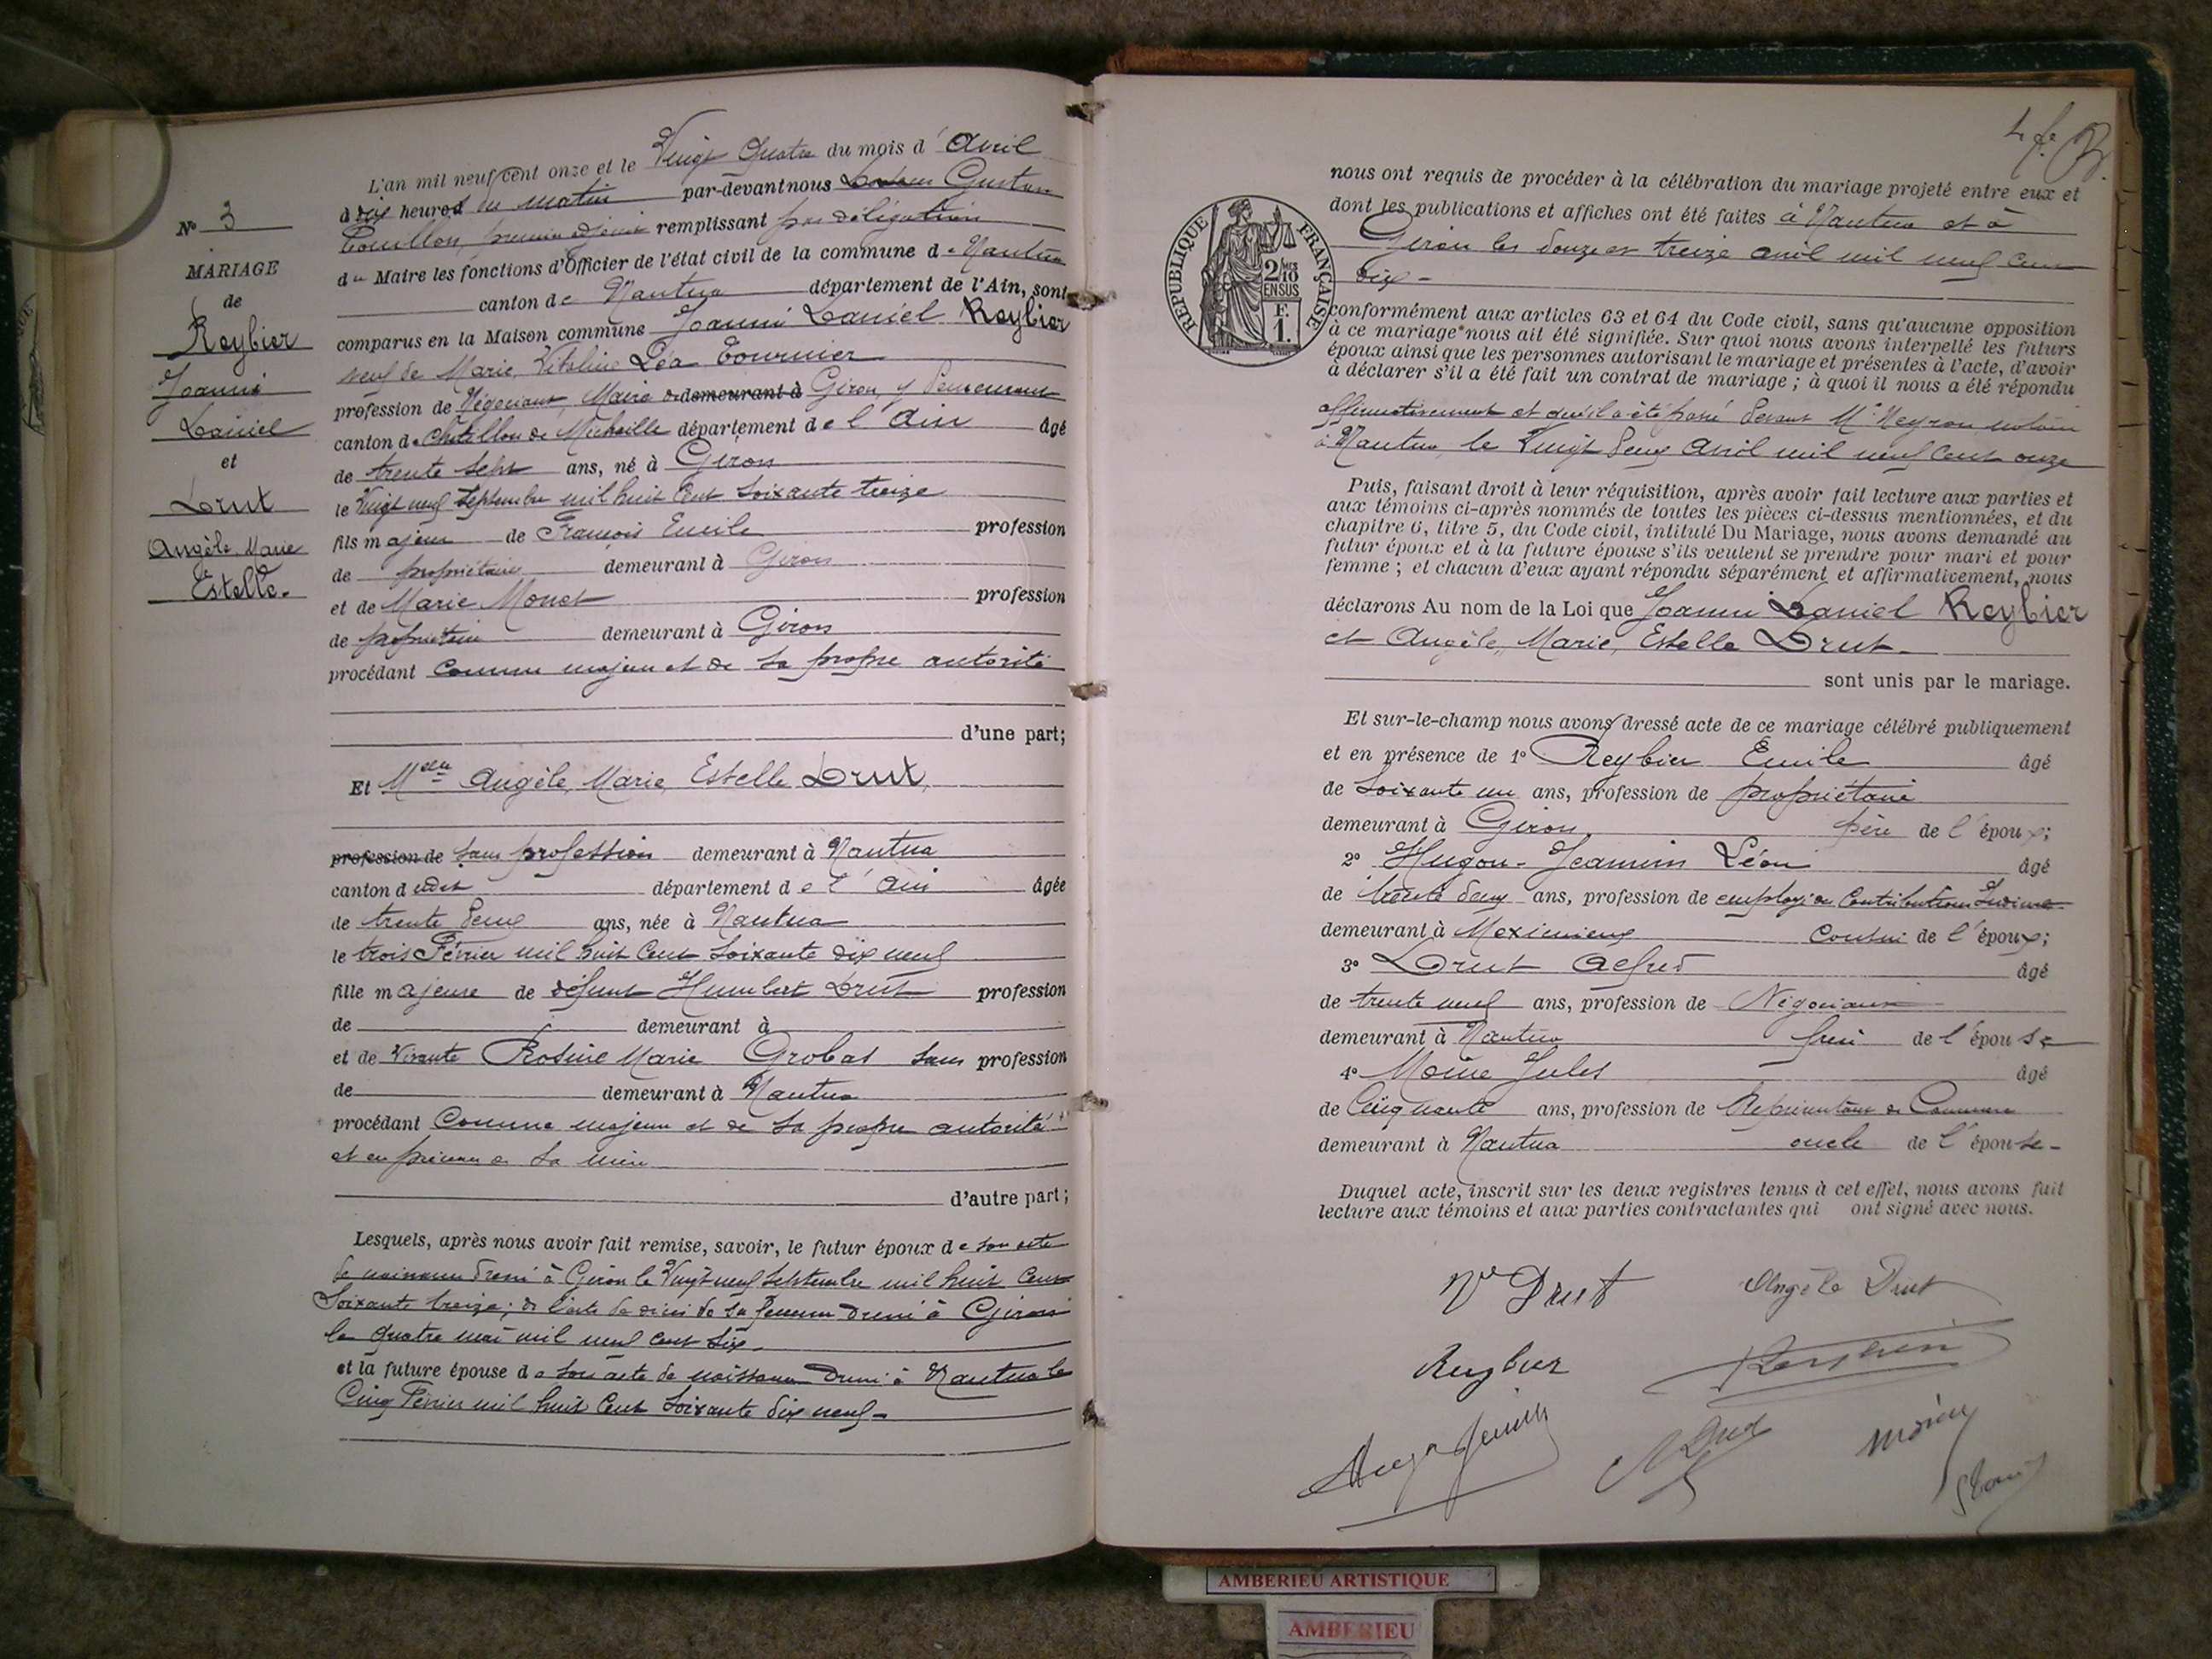 N° 3
MARIAGE
de
Reybier
Joanni
Daniel
et
Drut
Angèle Marie
Estelle.
L'an mil neuf cent onze et le Vingt Quatre du mois d'Avril
à dix heures du matin par-devant nous Gustave
premier adjoint remplissant par délégation
du Maire les fonctions d'Officier de l'état civil de la commune de Nantua
canton de Nantua département de l'Ain, sont
comparus en la Maison commune Joanni Daniel Reybier
veuf de Marie, Vitaline Léa Tournier
profession de Négociant, Maire de demeurant à Giron, y demeurant
canton de Châtillon de Michaille département de l'Ain âgé
de trente sept ans, né à Giron
le Vingt neuf Septembre mil huit cent soixante treize
fils majeur de François Emile profession
de propriétaire demeurant à Giron
et de Marie Monet profession
de propriétaire demeurant à Giron
procédant comme majeur et de sa propre autorité
d'une part;
Et Melle Angèle, Marie Estelle Drut,
profession de sans profession demeurant à Nantua
canton dudit département de l'Ain âgée
de trente deux ans, née à Nantua
le trois Février mil huit cent soixante dix neuf
fille majeure de défunt Humbert Drut profession
de demeurant à
et de vivante Rosine Marie Grobas sans profession
de demeurant à Nantua
procédant Comme majeure et de sa propre autorité
et en présence de sa mère
d'autre part;
Lesquels, après nous avoir fait remise, savoir, le futur époux de son acte
de naissance dressé à Giron le Vingt neuf Septembre mil huit cent
Soixante treize; de l'acte de décès de sa femme dressé à Giron
le quatre mai mil neuf cent six
et la future épouse de son acte de naissance dressé à Nantua le
Cinq Février mil huit cent soixante dix neuf
RÉPUBLIQUE FRANÇAISE
2/10 MES
EN SUS
F.
1.
nous ont requis de procéder à la célébration du mariage projeté entre eux et
dont les publications et affiches ont été faites à Nantua et à
Giron les douze et treize avril mil neuf cent
dix
conformément aux articles 63 et 64 du Code civil, sans qu'aucune opposition
à ce mariage nous ait été signifiée. Sur quoi nous avons interpellé les futurs
époux ainsi que les personnes autorisant le mariage et présentes à l'acte, d'avoir
à déclarer s'il a été fait un contrat de mariage; à quoi il nous a été répondu
affirmativement et qu'il a été passé devant Me Neyron notaire
à Nantua, le Vingt deux avril mil neuf cent onze
Puis, faisant droit à leur réquisition, après avoir fait lecture aux parties et
aux témoins ci-après nommés de toutes les pièces ci-dessus mentionnées, et du
chapitre 6, titre 5, du Code civil, intitulé Du Mariage, nous avons demandé au
futur époux et à la future épouse s'ils veulent se prendre pour mari et pour
femme; et chacun d'eux ayant répondu séparément et affirmativement, nous
déclarons Au nom de la Loi que Joanni Daniel Reybier
et Angèle, Marie, Estelle Drut
sont unis par le mariage.
Et sur-le-champ nous avons dressé acte de ce mariage célébré publiquement
et en présence de 1° Reybier Emile âgé
de Soixante un ans, profession de propriétaire
demeurant à Giron père de l'époux;
2° Hugon-Jeannin Léon âgé
de trente deux ans, profession de employé de Contributions Indirectes
demeurant à Meximieux cousin de l'époux;
3° Drut Alfred âgé
de trente neuf ans, profession de Négociant
demeurant à Nantua frère de l'épouse
4° Moine Jules âgé
de Cinquante ans, profession de Représentant de Commerce
demeurant à Nantua oncle de l'épouse
Duquel acte, inscrit sur les deux registres tenus à cet effet, nous avons fait
lecture aux témoins et aux parties contractantes qui ont signé avec nous.
Ve Drut Angèle Drut
Reybier
AMBERIEU ARTISTIQUE
AMBERIEU